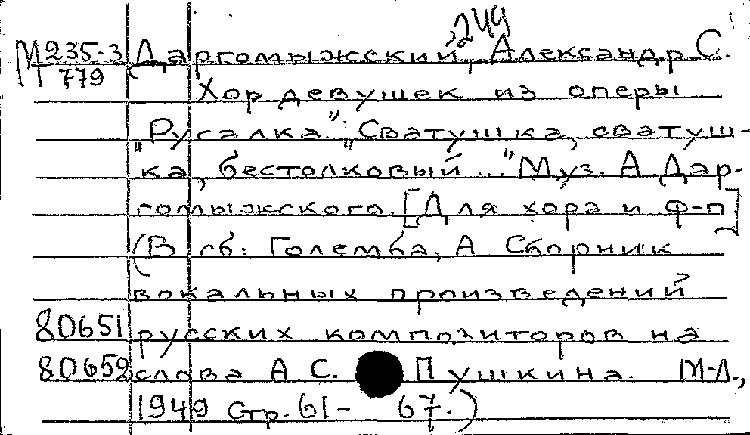 249
М 235-3 Даргомыжский, Александр С.
779 Хор девушек из оперы
"Русалка" "Сватушка, сватуш-
ка, бестолковый..." Муз. А Дар-
гомыжского. [Для хора и ф-п]
(В сб: Големба, А Сборник
вокальных произведений
80651 русских композиторов на
80652 слова А С. Пушкина. М-Л.,
1949 Стр. 61- 67.)